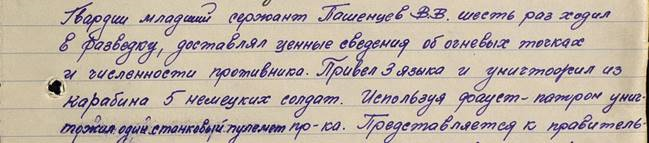 Гвардии младший сержант Пашенцев В.В. шесть раз ходил
в разведку, доставлял ценные сведения об огневых точках
и численности противника. Привел 3 языка и уничтожил из
карабина 5 немецких солдат. Используя фауст-патрон унич-
тожил один станковый пулемет пр-ка. Представляется к правитель-